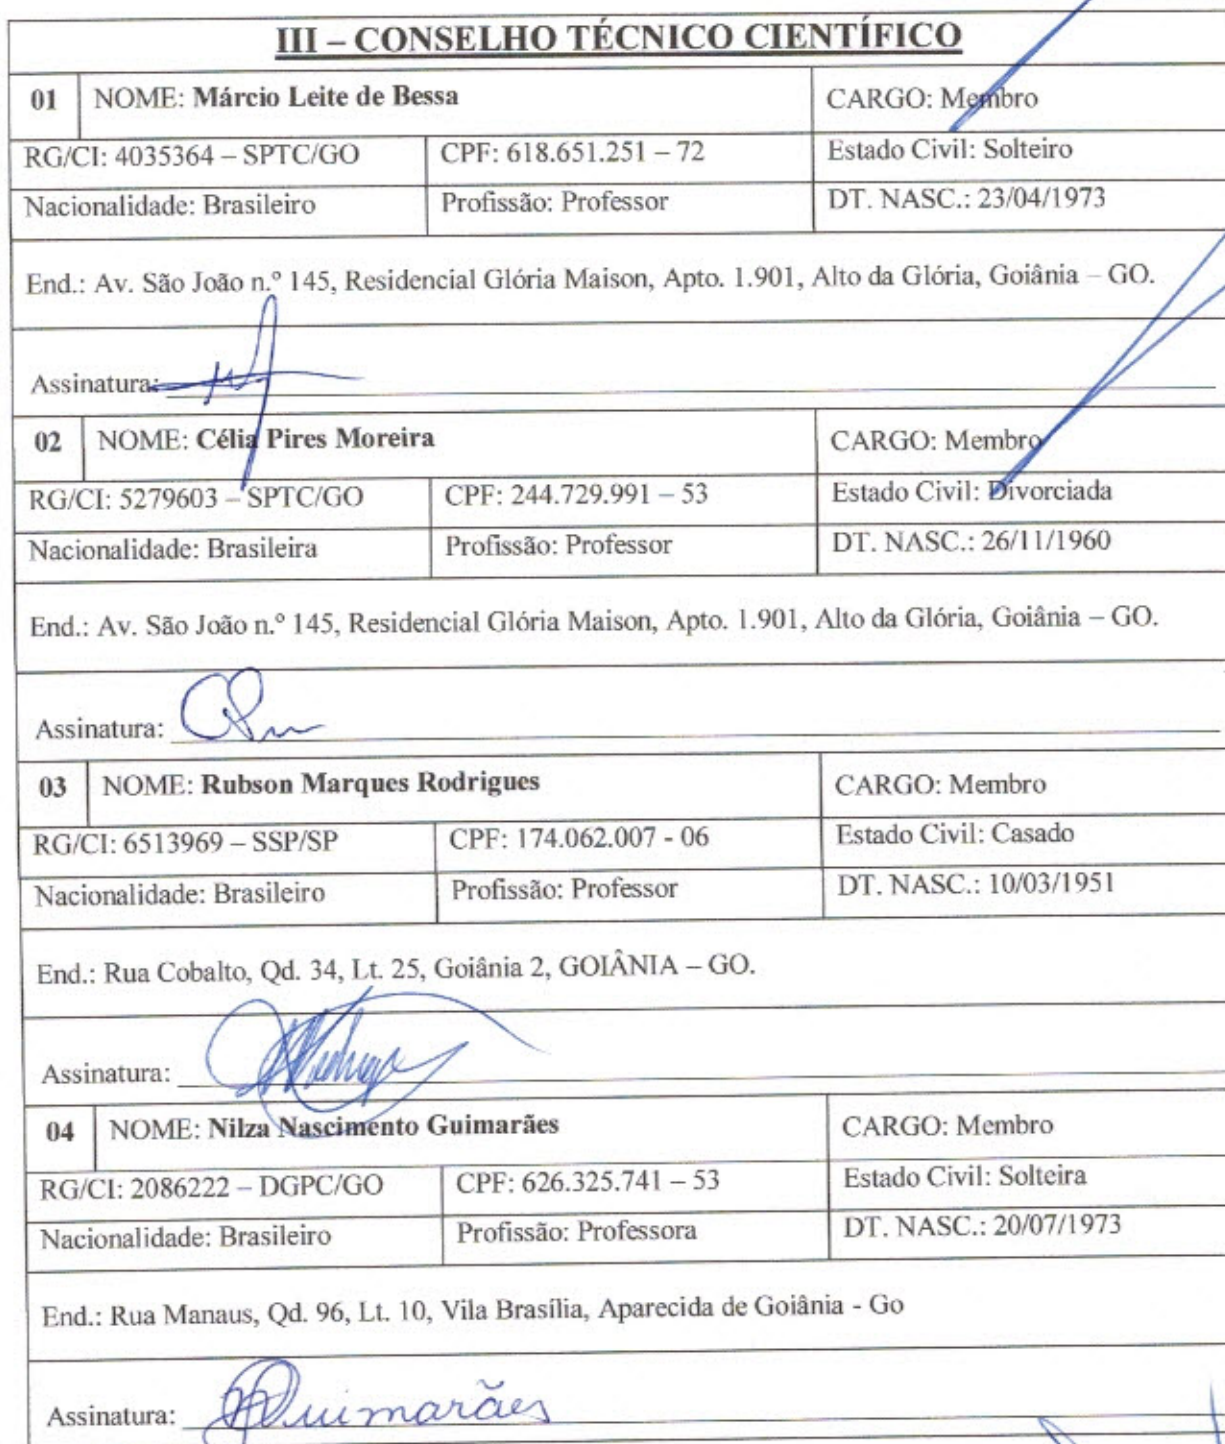 III – CONSELHO TÉCNICO CIENTÍFICO
01 NOME: Márcio Leite de Bessa CARGO: Membro
RG/CI: 4035364 – SPTC/GO CPF: 618.651.251 – 72 Estado Civil: Solteiro
Nacionalidade: Brasileiro Profissão: Professor DT. NASC.: 23/04/1973
End.: Av. São João n.º 145, Residencial Glória Maison, Apto. 1.901, Alto da Glória, Goiânia – GO.
Assinatura:
02 NOME: Célia Pires Moreira CARGO: Membro
RG/CI: 5279603 – SPTC/GO CPF: 244.729.991 – 53 Estado Civil: Divorciada
Nacionalidade: Brasileira Profissão: Professor DT. NASC.: 26/11/1960
End.: Av. São João n.º 145, Residencial Glória Maison, Apto. 1.901, Alto da Glória, Goiânia – GO.
Assinatura:
03 NOME: Rubson Marques Rodrigues CARGO: Membro
RG/CI: 6513969 – SSP/SP CPF: 174.062.007 - 06 Estado Civil: Casado
Nacionalidade: Brasileiro Profissão: Professor DT. NASC.: 10/03/1951
End.: Rua Cobalto, Qd. 34, Lt. 25, Goiânia 2, GOIÂNIA – GO.
Assinatura:
04 NOME: Nilza Nascimento Guimarães CARGO: Membro
RG/CI: 2086222 – DGPC/GO CPF: 626.325.741 – 53 Estado Civil: Solteira
Nacionalidade: Brasileiro Profissão: Professora DT. NASC.: 20/07/1973
End.: Rua Manaus, Qd. 96, Lt. 10, Vila Brasília, Aparecida de Goiânia - Go
Assinatura: Guimarães